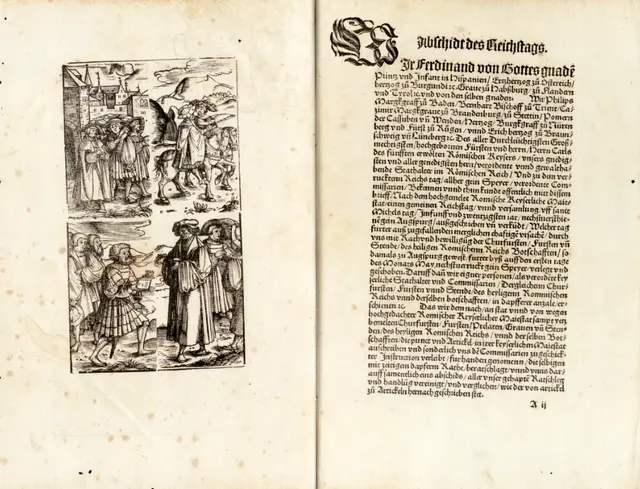 Abschidt des Reichstags.
Wir Ferdinand von Gottes gnadē
Printz vnd Infant in Hispanien/ Ertzhertzog zů Osterreich/
hertzog zů Burgundi ꝛc. Graue zů Habspurg/ zů Flandern
vnd Tyrol ꝛc. vnd von den selben gnaden: Wir Philips
Marggraff zů Baden/ Bernhart Bischoff zů Trient/ Ca/
simir Marggraue zů Brandenburg/ zů Stettin/ Pomern
der Cassuben vñ Wenden/ Hertzog/ Burggraff zů Nüren
berg vnd Fürst zů Rügen/ vnnd Erich hertzog zů Braun/
schweig vñ Lüneberg ꝛc. Des aller Durchleüchtigsten Groß/
mechtigsten/ hochgebornen Fürsten vnd herrn/ Herrn Carls
des fünfften erwölten Römischen Keysers/ vnsers gnedig/
sten vnd aller genedigsten hern/ verordente vnnd gewaltha/
bende Statthalter im Römischen Reich/ Vnd zů dem ver/
ruckten Reichs tag/ allher gein Speyer/ verordente Com/
missarien/ Bekennen vnnd thun kunde offentlich mit disem
brieff/ Nach dem hochgemelte Römische Keyserliche Maie/
stat/ einen gemeinen Reichstag/ vnnd versamlung vff sanct
Michels tag/ Im funff vnd zwentzigsten iar/ nechstuerschie/
nen gein Augspurg/ außgeschriben vñ verkündt/ Welcher tag
furter auß zugefallenden mercklichen ehafftige vrsachē/ durch
vns mit Rath vnd bewilligūg der Churfürsten/ Fursten vñ
Stende/ des heiligen Römischen Reichs Botschafften/ so
damals zů Augspurg gewest/ furter byß auff den ersten tage
des Monats May/ nechstuerruckt gein Speyer/ verlegt vnd
geschoben. Daruff dan wir eigner personen/ als verordete key
serliche Stathalter vnd Commissarien/ Dergleichen Churf/
fursten/ Fursten vnnd Stende/ des heyligenn Rommischen
Reichs vnnd derselben botschafften/ in dapfferer anzale/ er/
schienen ꝛc. Das wir dem nach/ an stat vnnd von wegen
hochgedachter Romischer Keyserlicher Maiestat sampt vor
bemelten Churfürsten/ Fursten/ Prelaten/ Grauen vñ Sten/
den/ des heyligen Romischen Reichs/ vnnd derselben Bot/
schafften/ die punct vnd Artickel in irer keyserlichen Maiestat
außschreiben vnd sonderlich vns dē Commissarien zugeschick/
ter Instruction verleibt/ fur handen genommen/ die selbigen
mit zeitigem dapfern Rathe/ beratschlagt/ vnnd vnns dar/
auff samentlich eins abschids/ aller vnser gehapte Ratschleg
vnd handlūg vereinigt/ vnnd verglichen/ wie der von artickel
zů Artickeln hernach geschrieben stet.
A ij